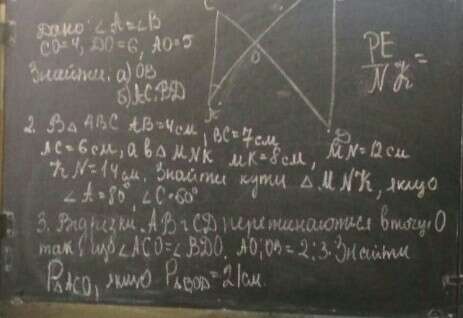 Дано: ∠A=∠B
CO=4, DO=6, AO=5
Знайти: а) OB
б) AC:BD
C
O
D
PE
NK =
2. В △ ABC AB=4см, BC=7см
AC=6см, а в △ MNK MK=8см, MN=12см
KN=14см. Знайти кути △ MNK, якщо
∠A=80°, ∠C=60°
3. Відрізки AB і CD перетинаються в точці O
так, що ∠ACO=∠BDO, AO:OB=2:3. Знайти
P△ACO, якщо P△BOD=21см.